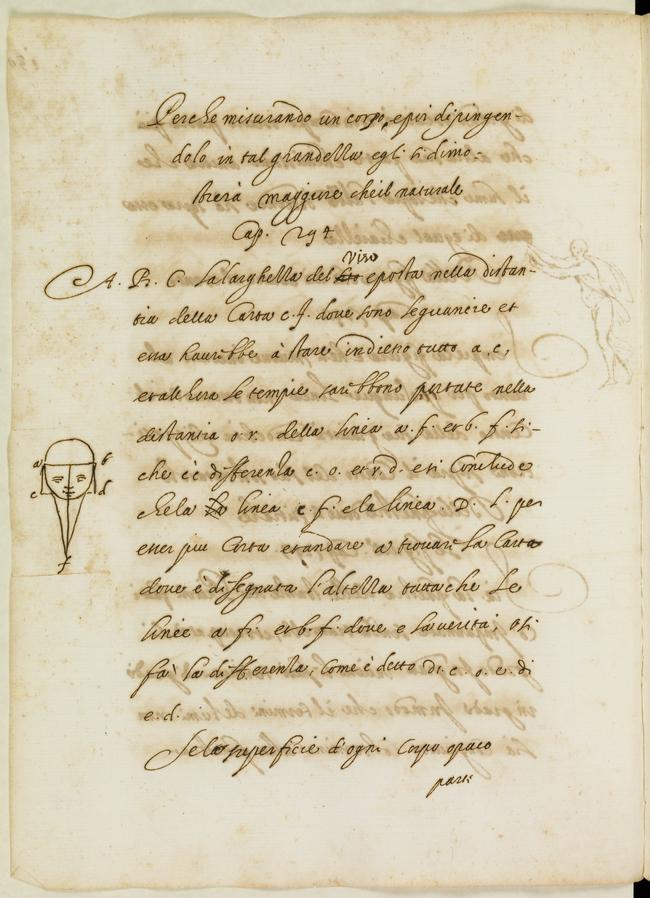 Perche misurando un corpo, e poi dipingen-
dolo in tal grandezza egli si dimo-
strerà maggiore che il naturale
Cap. 294
viso
A. B. C. la larghezza del e posta nella distan-
tia della Carta c. f. dove sono le guancie et
essa haurebbe à stare indietro tutto a. c,
et allhora le tempie sarebbono portate nella
distantia o. r. della linea a. f. et b. f. si-
che c'è differenza c. o. et r. d. e si Conclude
che la linea c. f. e la linea. D. f. per
esser piu Corta et andare a trovare la Carta
dove è disegnata l'altezza tutta che le
linee a f. et b. f. dove e la verità, et si
fa' la differenza, Come è detto di. c. o. e. di
e. d.
Se la superficie d'ogni Corpo opaco
parti
a b
c d
f